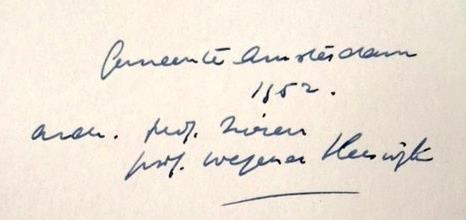 Gemeente Amsterdam
1952.
arch. prof. Zwiers
prof. Wegener Sleeswijk